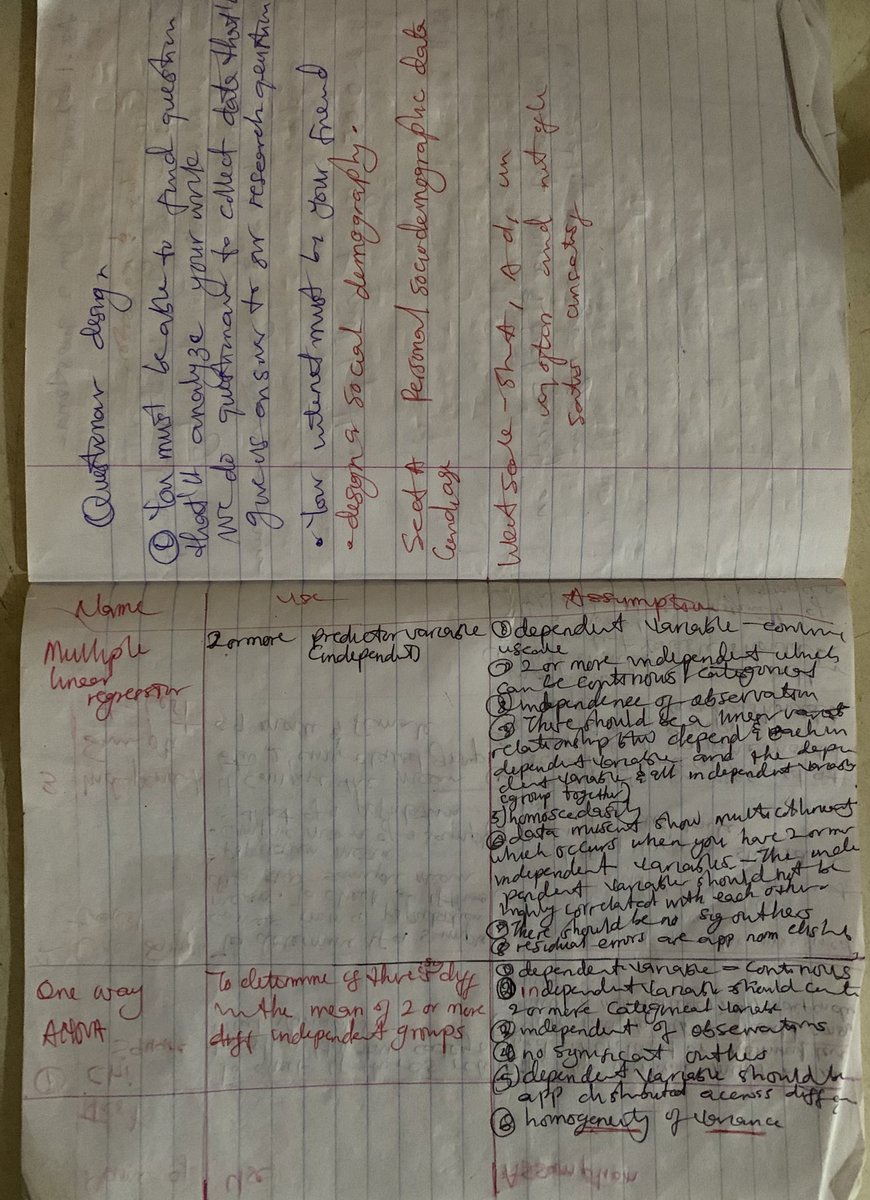 Questionar design
① You must be able to find question
that'll analyze your work
We do questionnaire to collect data that'll
give us answer to our research question
• Your interest must be your friend
• design a social demography.
Sect A Personal sociodemographic data
scale - 
option and not
Name
use
Assumption
Multiple
linear
regression
2 or more predictor variable
(independent)
① dependent variable - continu
scale
② 2 or more independent which
can be continous / categorical
③ independence of observation
④ There should be a linear
relationship btw depend & each in
dependent variable and the depen
dent variable & all independent variab
(group together)
5) homoscedasity
⑥ data show
which occurs when you have 2 or mr
independent variables - The inde
pendent variable should not be
highly correlated with each other
⑦ There should be no sig outliers
⑧ residual errors are app nom
One way
ANOVA
To determine if there's sig diff
in the mean of 2 or more
diff independent groups
① dependent variable = continous
② independent variable should
2 or more categorical variable
③ independent of observations
④ no significant
⑤ dependent variable should
app across
⑥ homogeneity of variance